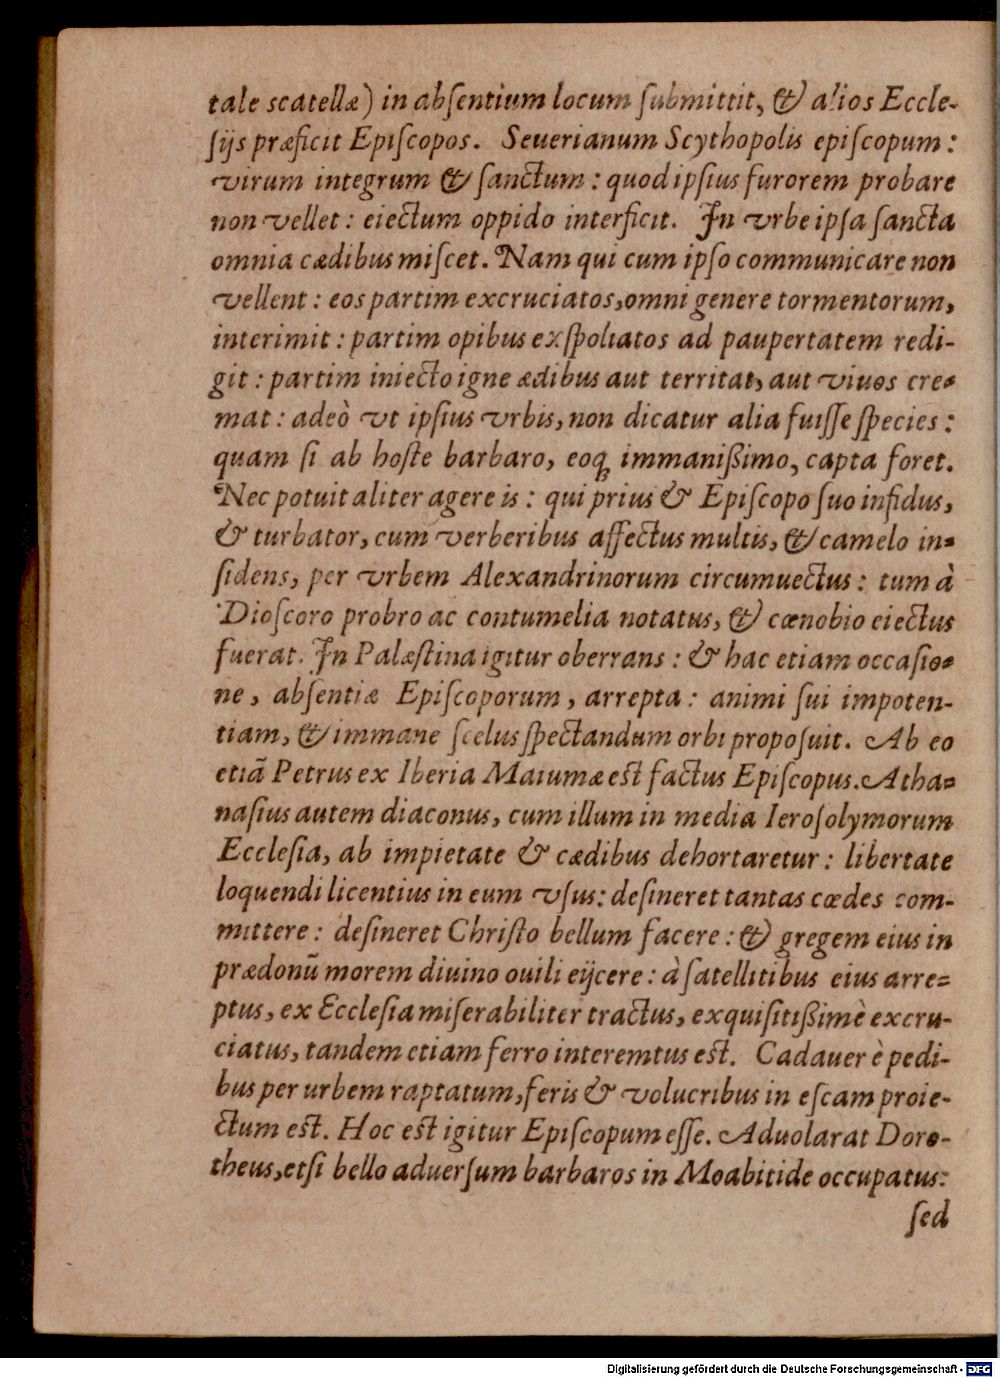 tale scatellæ) in abſentium locum ſubmittit, & alios Eccle-
ſijs præficit Epiſcopos. Seuerianum Scythopolis epiſcopum:
virum integrum & ſanctum: quod ipſius furorem probare
non vellet: eiectum oppido interficit. In vrbe ipſa ſancta
omnia cædibus miſcet. Nam qui cum ipſo communicare non
vellent: eos partim excruciatos, omni genere tormentorum,
interimit: partim opibus exſpoliatos ad paupertatem redi-
git: partim iniecto igne ædibus aut territat, aut viuos cre-
mat: adeò vt ipſius vrbis, non dicatur alia fuiſſe ſpecies:
quam ſi ab hoſte barbaro, eoq́ꝫ immanißimo, capta foret.
Nec potuit aliter agere is: qui prius & Epiſcopo ſuo infidus,
& turbator, cum verberibus affectus multis, & camelo in-
ſidens, per vrbem Alexandrinorum circumuectus: tum à
Dioſcoro probro ac contumelia notatus, & cœnobio eiectus
fuerat. In Palæſtina igitur oberrans: & hac etiam occaſio-
ne, abſentiæ Epiſcoporum, arrepta: animi ſui impoten-
tiam, & immane ſcelus ſpectandum orbi propoſuit. Ab eo
etiã Petrus ex Iberia Maiumæ eſt factus Epiſcopus. Atha-
naſius autem diaconus, cum illum in media Ieroſolymorum
Eccleſia, ab impietate & cædibus dehortaretur: libertate
loquendi licentius in eum vſus: deſineret tantas cœdes com-
mittere: deſineret Chriſto bellum facere: & gregem eius in
prædonũ morem diuino ouili eijcere: à ſatellitibus eius arre-
ptus, ex Eccleſia miſerabiliter tractus, exquiſitißimè excru-
ciatus, tandem etiam ferro interemtus eſt. Cadauer è pedi-
bus per urbem raptatum, feris & volucribus in eſcam proie-
ctum eſt. Hoc eſt igitur Epiſcopum eſſe. Aduolarat Doro-
theus, etſi bello aduerſum barbaros in Moabitide occupatus:
ſed
Digitalisierung gefördert durch die Deutsche Forschungsgemeinschaft - DFG